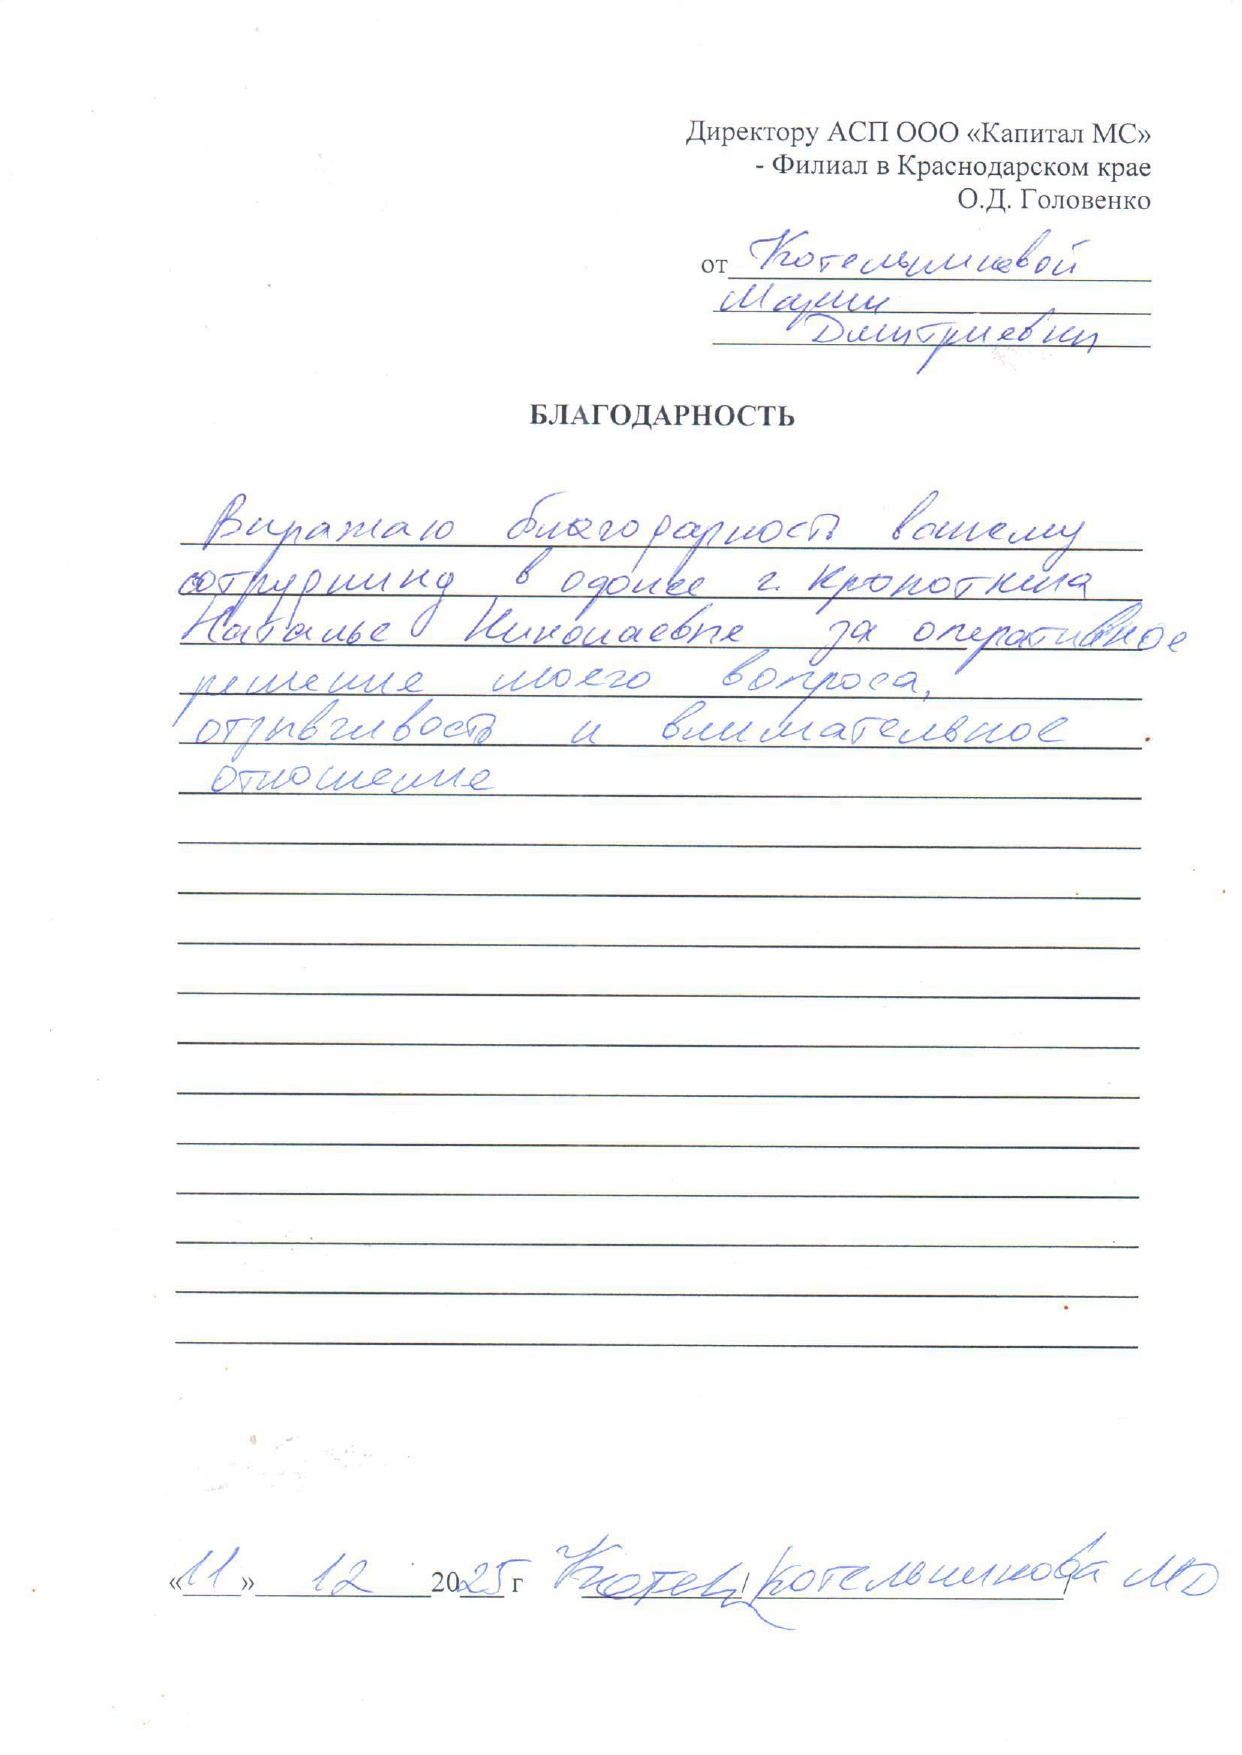 Директору АСП ООО «Капитал МС»
- Филиал в Краснодарском крае
О.Д. Головенко
от Котельниковой
Марии
Дмитриевны
БЛАГОДАРНОСТЬ
Выражаю благодарность вашему
сотруднику в офисе г. Кропоткина
Наталье Николаевне за оперативное
решение моего вопроса,
отзывчивость и внимательное
отношение
«11» 12 2025 г Котел / Котельникова МД /